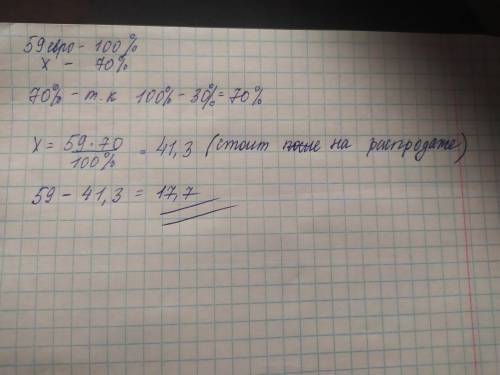 59 евро - 100%
х - 70%
70% - т.к 100% - 30% = 70%
х = 59 · 70 / 100% = 41,3 (стоит после на распродаже)
59 - 41,3 = 17,7